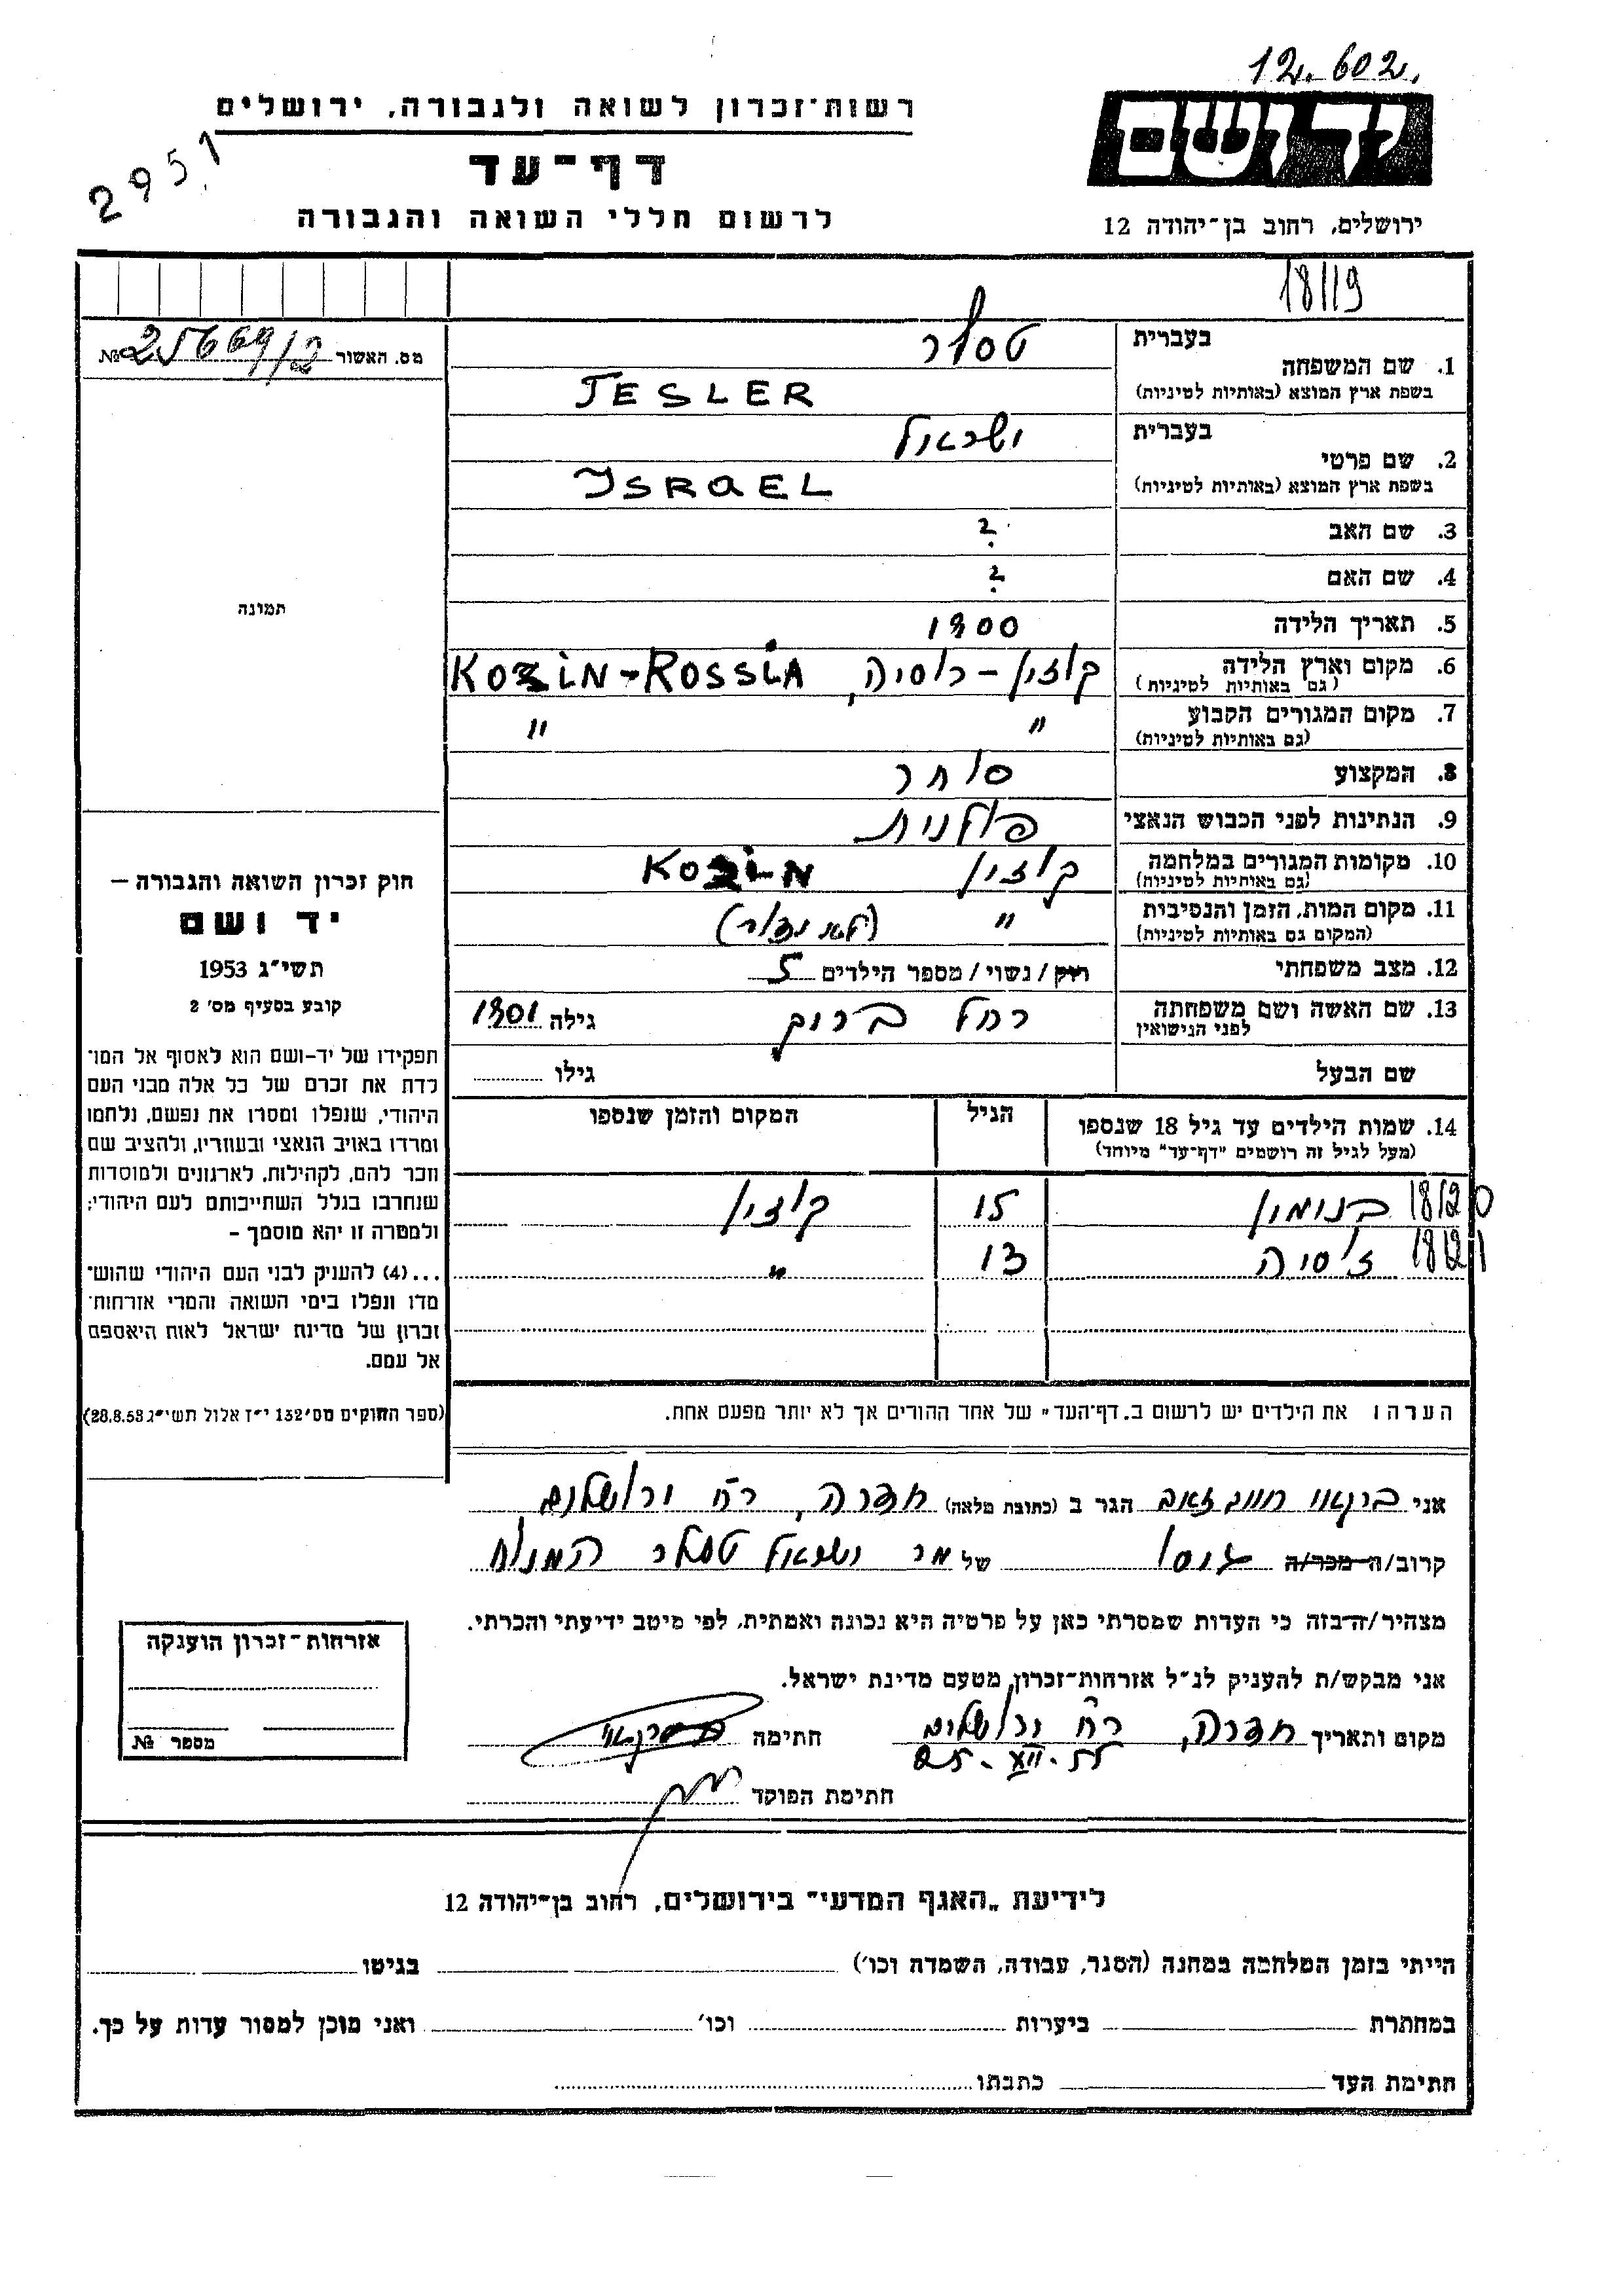 12.602
רשות־זכרון לשואה ולגבורה, ירושלים
יד ושם
2951
דף־עד
לרשום חללי השואה והגבורה
ירושלים, רחוב בן־יהודה 12
מס. האשור № 25669/2
תמונה
1. שם המשפחה
בעברית טסלר
בשפת ארץ המוצא (באותיות לטיניות) TESLER
2. שם פרטי
בעברית ישראל
בשפת ארץ המוצא (באותיות לטיניות) ISRAEL
3. שם האב ?
4. שם האם ?
5. תאריך הלידה 1900
6. מקום וארץ הלידה קוזין – רוסיה, KOZIN-ROSSIA
(גם באותיות לטיניות)
7. מקום המגורים הקבוע " "
(גם באותיות לטיניות)
8. המקצוע סוחר
9. הנתינות לפני הכבוש הנאצי פולנית
10. מקומות המגורים במלחמה קוזין KOZIN
(גם באותיות לטיניות)
11. מקום המות, הזמן והנסיבות "
(המקום גם באותיות לטיניות)
12. מצב משפחתי רווק / נשוי / מספר הילדים 5
13. שם האשה ושם משפחתה רחל ברוק גילה 1901
לפני הנישואין
שם הבעל גילו
14. שמות הילדים עד גיל 18 שנספו הגיל המקום והזמן שנספו
(מעל לגיל זה רושמים "דף־עד" מיוחד)
בנימין 15 קוזין
זיסיה 13 "
הערה: את הילדים יש לרשום ב„דף־העד" של אחד ההורים אך לא יותר מפעם אחת.
חוק זכרון השואה והגבורה –
יד ושם
תשי"ג 1953
קובע בסעיף מס׳ 2
תפקידו של יד-ושם הוא לאסוף אל המו־
לדת את זכרם של כל אלה מבני העם
היהודי, שנפלו ומסרו את נפשם, נלחמו
ומרדו באויב הנאצי ובעוזריו, ולהציב שם
וזכר להם, לקהילות, לארגונים ולמוסדות
שנחרבו בגלל השתייכותם לעם היהודי;
ולמטרה זו יהא מוסמך –
...(4) להעניק לבני העם היהודי שהוש־
מדו ונפלו בימי השואה והמרי אזרחות־
זכרון של מדינת ישראל לאות היאספם
אל עמם.
(ספר החוקים מס׳ 132 י״ז אלול תשי״ג 28.8.53)
אני חיים זאב הגר ב (כתובת מלאה) חדרה, רח׳ ירושלים
קרוב/ה מכר/ה גיסו של מר ישראל טסלר המנוח
מצהיר/ה בזה כי העדות שמסרתי כאן על פרטיה היא נכונה ואמתית, לפי מיטב ידיעתי והכרתי.
אני מבקש/ת להעניק לנ״ל אזרחות־זכרון מטעם מדינת ישראל.
מקום ותאריך חדרה, רח׳ ירושלים חתימה
25-XII-55
חתימת הפוקד
אזרחות־זכרון הוענקה
מספר №
לידיעת „האגף המדעי" בירושלים, רחוב בן־יהודה 12
הייתי בזמן המלחמה במחנה (הסגר, עבודה, השמדה וכו׳) בגיטו
במחתרת ביערות וכו׳ ואני מוכן למסור עדות על כך.
חתימת העד כתבתו